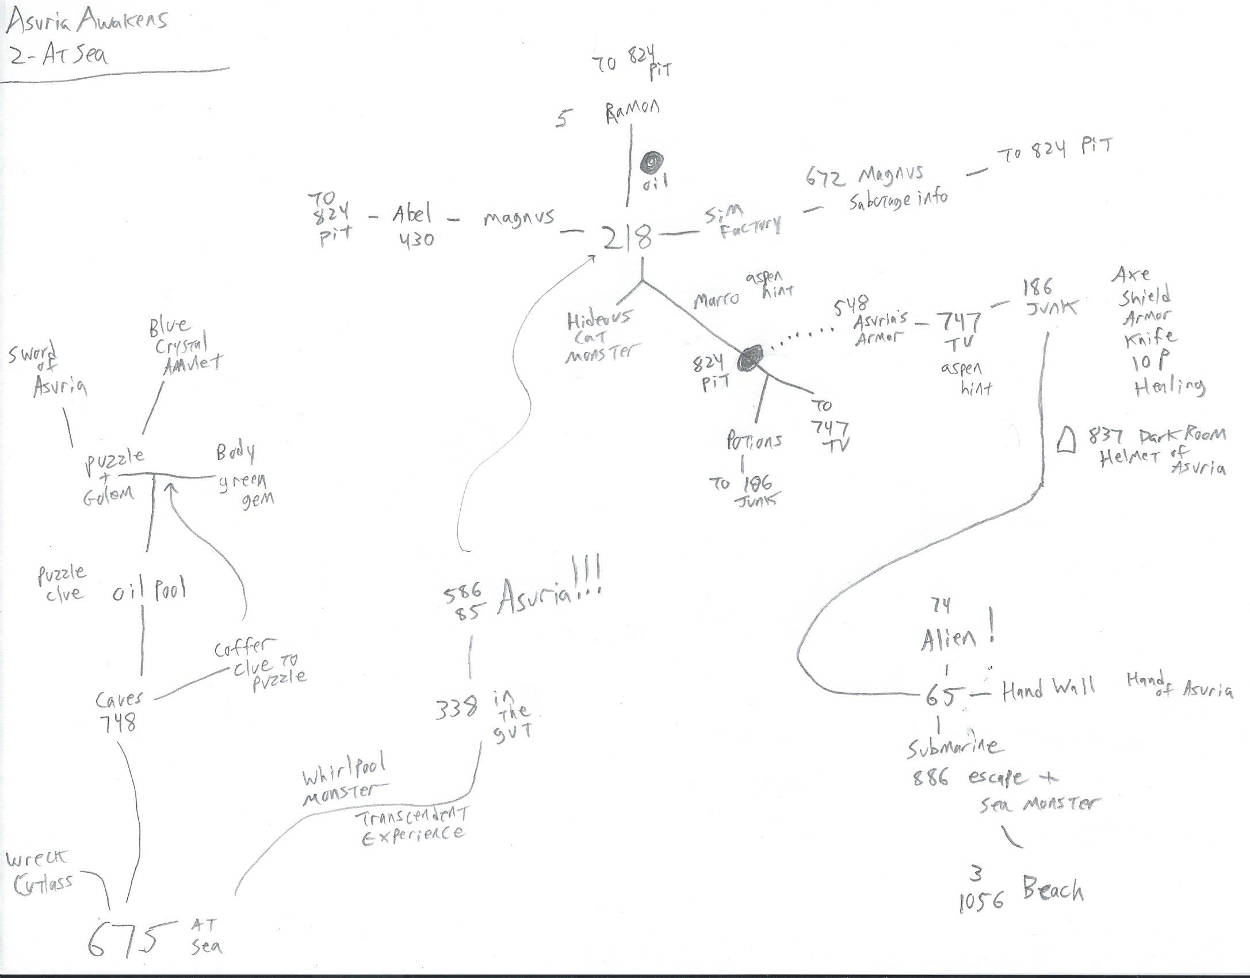 Asuria Awakens
2- At Sea
TO 824
PIT
5
Ramon
oil
TO
824
Pit
- Abel -
430
magnus
218
Sim
Factory
672 Magnus
Sabotage info
TO 824 PIT
Hideous
Cat
Monster
Marro
aspen
hint
824
PIT
548
Asuria's
Armor
747
TV
aspen
hint
186
JUNK
Axe
Shield
Armor
Knife
10 P
Healing
Potions
TO 186
JUNK
TO
747
TV
837 Dark Room
Helmet of
Asuria
Sword
of
Asuria
Blue
Crystal
Amulet
Puzzle
+
Golem
Body
green
gem
Puzzle
clue
oil Pool
Coffer
clue TO
Puzzle
Caves
748
586
85
Asuria!!!
338
in
The
gut
Whirlpool
Monster
Transcendent
Experience
Wreck
Cutlass
675
AT
Sea
74
Alien!
65
Hand Wall
Hand
of Asuria
Submarine
886 escape +
Sea Monster
3
1056
Beach